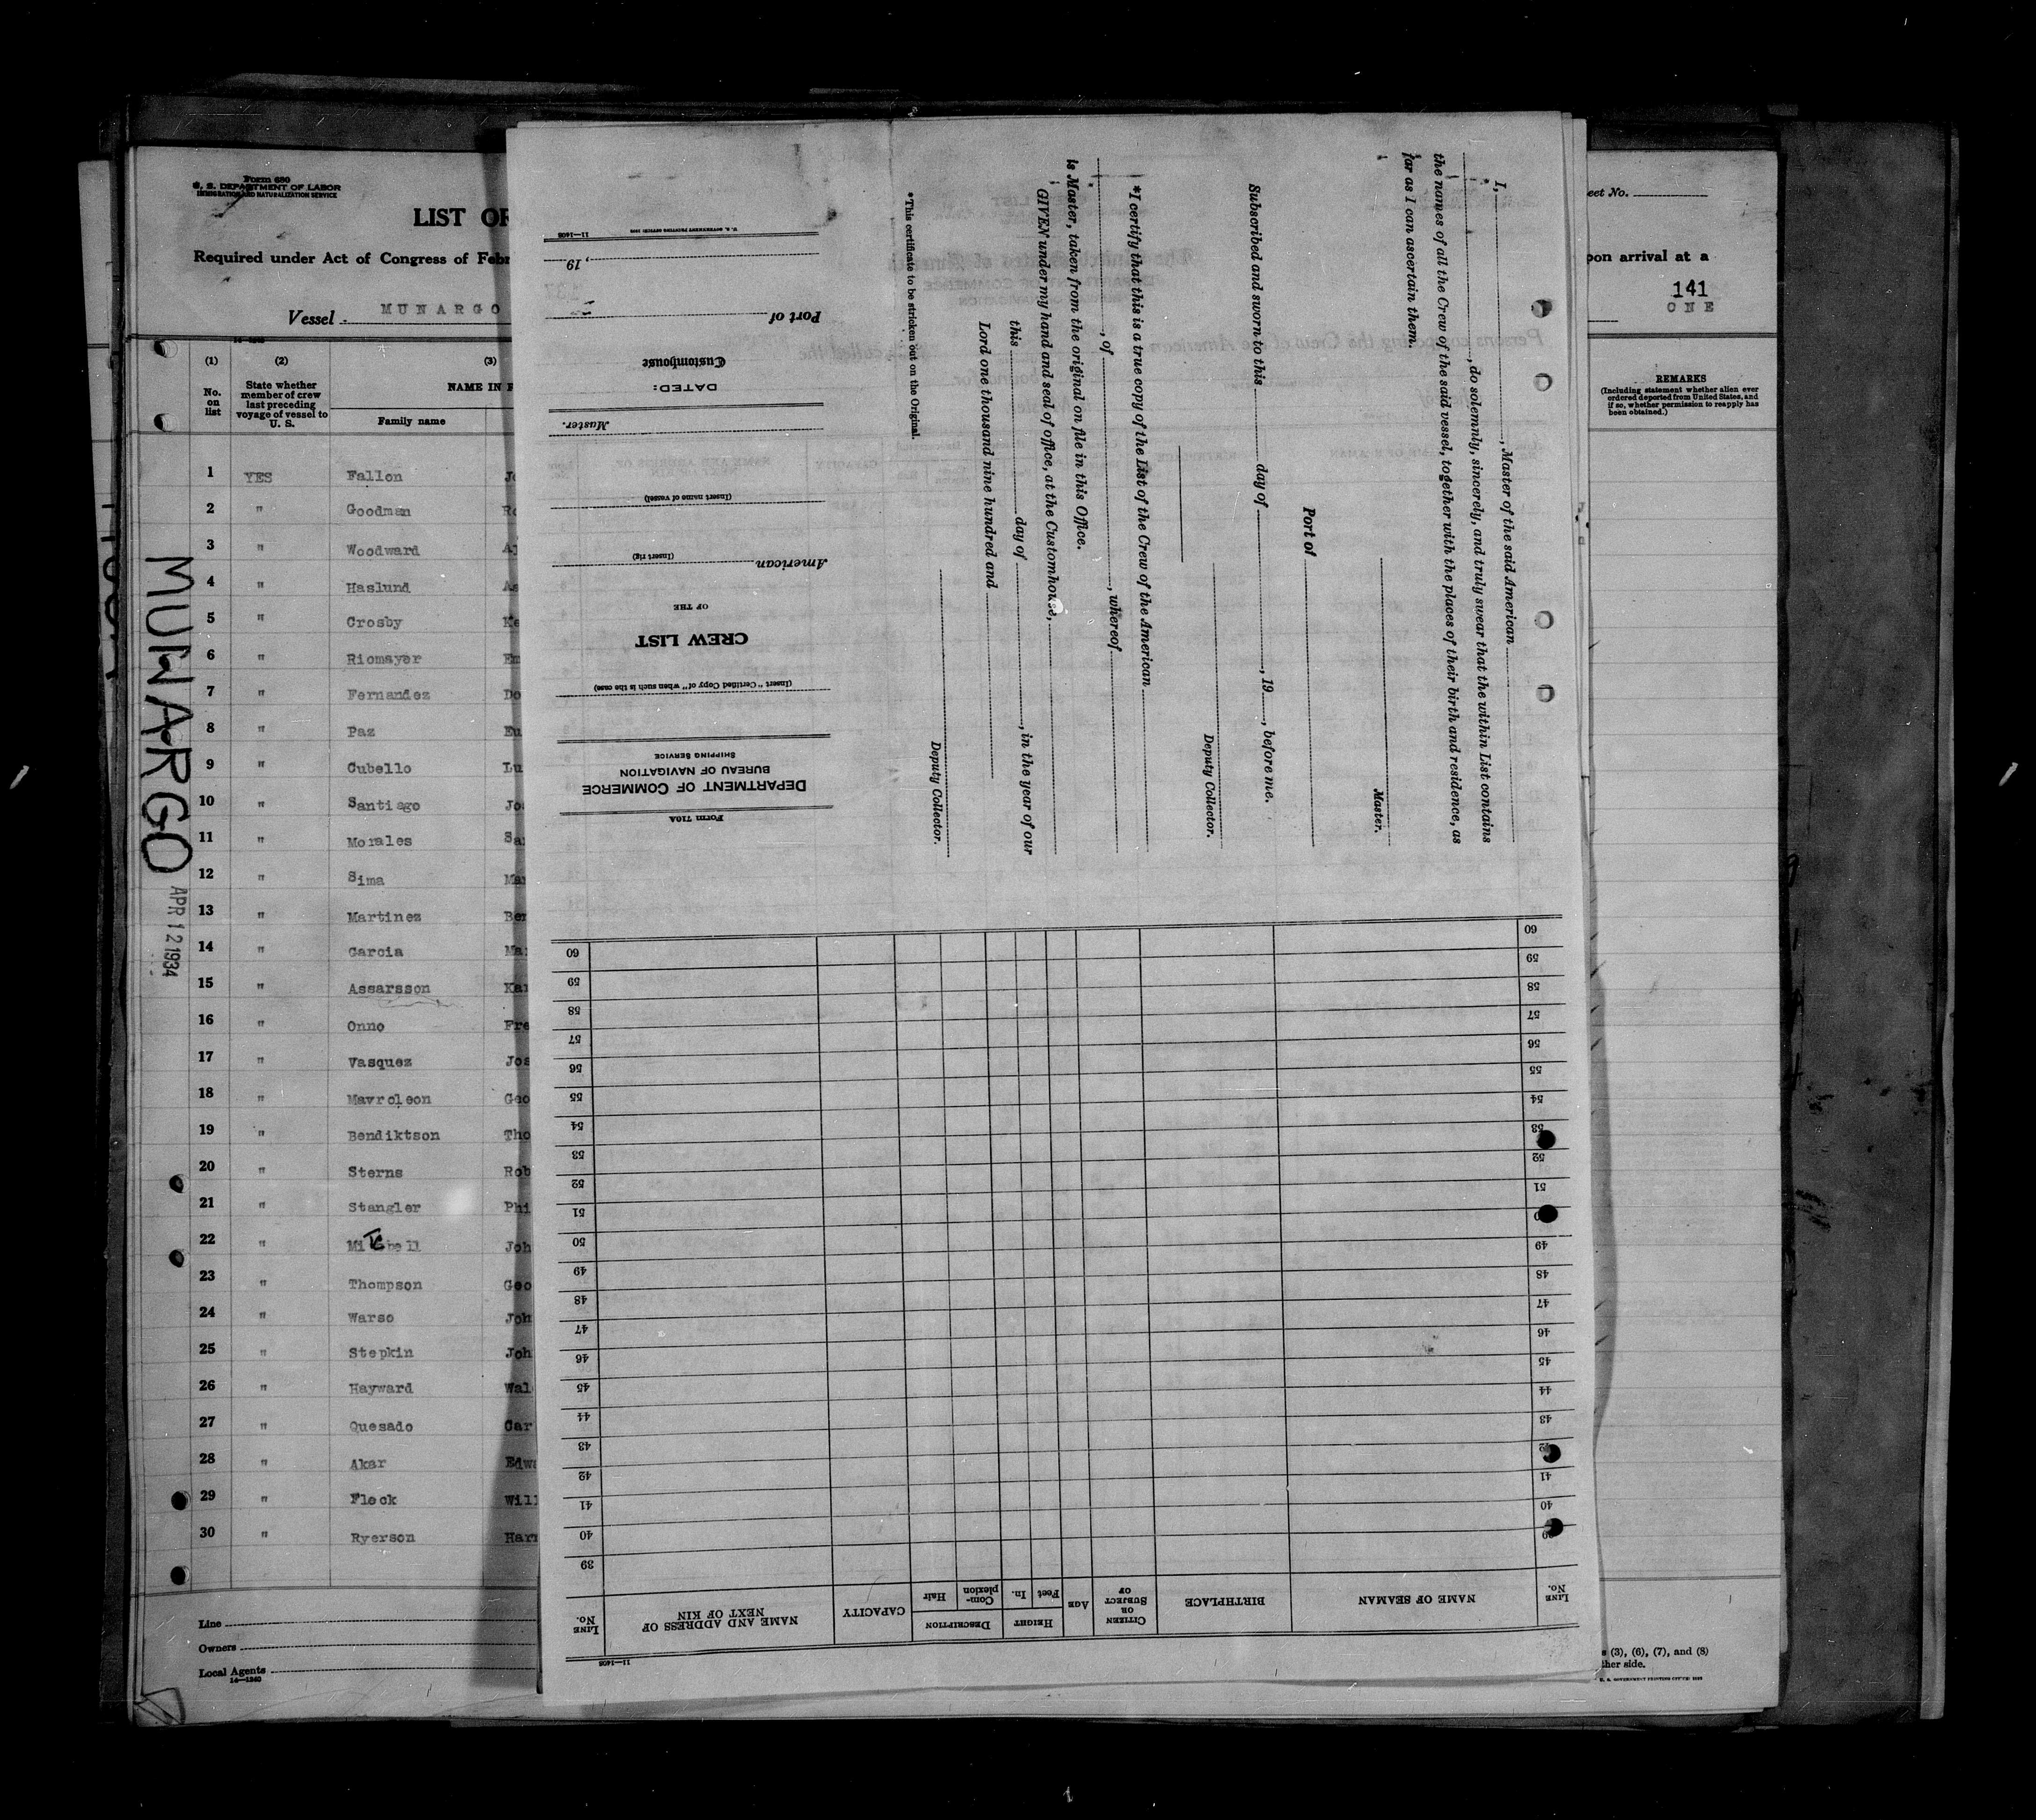 Form 680
U. S. DEPARTMENT OF LABOR
IMMIGRATION AND NATURALIZATION SERVICE
LIST OF
Required under Act of Congress of Febr
Vessel MUNARGO
(1) (2) (3)
No. on list
State whether member of crew last preceding voyage of vessel to U. S.
NAME IN F
Family name
1 YES Fallon Jo
2 " Goodman Ro
3 " Woodward
4 " Haslund As
5 " Crosby Ke
6 " Riomayor Em
7 " Fernandez Do
8 " Paz Eu
9 " Cubello Lu
10 " Santiago Jo
11 " Morales Sa
12 " Sima Ma
13 " Martinez Ber
14 " Garcia Ma
15 " Assarsson Ka
16 " Onno Fre
17 " Vasquez Jos
18 " Mavroleon Geo
19 " Bendiktson Tho
20 " Sterns Rob
21 " Stangler Phi
22 " Mitchell Joh
23 " Thompson Geo
24 " Warso Joh
25 " Stepkin Joh
26 " Hayward Wal
27 " Quesado Car
28 " Akar Edw
29 " Fleck Will
30 " Ryerson Harr
Line
Owners
Local Agents
14—1240
MUNARGO
APR 12 1934
I, , Master of the said American
, do solemnly, sincerely, and truly swear that the within List contains
the names of all the Crew of the said vessel, together with the places of their birth and residence, as
far as I can ascertain them.
Master.
Port of
Subscribed and sworn to this day of , 19 , before me.
Deputy Collector.
*I certify that this is a true copy of the List of the Crew of the American
, of , whereof
is Master, taken from the original on file in this Office.
GIVEN under my hand and seal of office, at the Customhouse,
this day of , in the year of our
Lord one thousand nine hundred and
Deputy Collector.
*This certificate to be stricken out on the Original.
Form 710A
DEPARTMENT OF COMMERCE
BUREAU OF NAVIGATION
SHIPPING SERVICE
(Insert "Certified Copy of" when such is the case)
CREW LIST
OF THE
American
(Insert rig)
(Insert name of vessel)
Master.
DATED:
Customhouse
Port of
, 19
11—1408
LINE No.
NAME OF SEAMAN
BIRTHPLACE
CITIZEN OR SUBJECT OF
AGE
HEIGHT
Feet In.
DESCRIPTION
Complexion Hair
CAPACITY
NAME AND ADDRESS OF NEXT OF KIN
LINE No.
39
40 40
41 41
42 42
43 43
44 44
45 45
46 46
47 47
48 48
49 49
50
51 51
52 52
53 53
54 54
55 55
56 56
57 57
58 58
59 59
60 60
11—1408
eet No.
pon arrival at a
141
ONE
REMARKS
(Including statement whether alien ever ordered deported from United States, and if so, whether permission to reapply has been obtained.)
s (3), (6), (7), and (8)
ther side.
U. S. GOVERNMENT PRINTING OFFICE